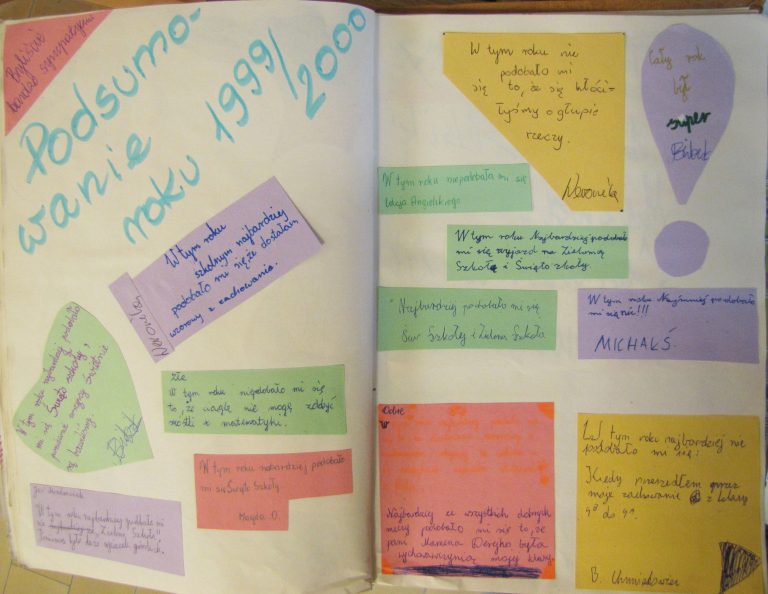 Byliście
bardzo sympatyczni
Podsumo-
wanie
roku 1999/
2000
W tym roku
szkolnym najbardziej
podobało mi się że dostałam
wzorowy z zachowania.
Weronika
W tym roku najbardziej podobało
mi się Święto szkoły,
ponieważ wszyscy świetnie
się bawiliśmy.
Źle
W tym roku niepodobało mi się
to, że ciągle nie mogę zdobyć
szóstki z matematyki.
W tym roku najbardziej podobało
mi się Święto Szkoły
Magda O.
W tym roku najbardziej podobało mi
się "Zielona Szkoła"
Ponieważ było dużo wycieczek górskich.
W tym roku nie
podobało mi
się to, że się kłóci-
łyśmy o głupie
rzeczy.
Weronika
Cały rok
był
super
W tym roku niepodobała mi się
lekcja Angielskiego
W tym roku Najbardziej podobało
mi się wyjazd na Zieloną
Szkołę i Święto szkoły.
Najbardziej podobało mi się
Św. Szkoły i Zielona Szkoła
W tym roku Najmniej podobało
mi się nic!!!
MICHAŚ.
Dobre
W
Najbardziej ze wszystkich dobrych
rzeczy podobało mi się to, że
pani Marzena Deręgko była
wychowawczynią mojej klasy.
W tym roku najbardziej nie
podobało mi się:
Kiedy przeszedłem przez
moje zachowanie z klasy
4a do 4c.
B. Chmielewicz